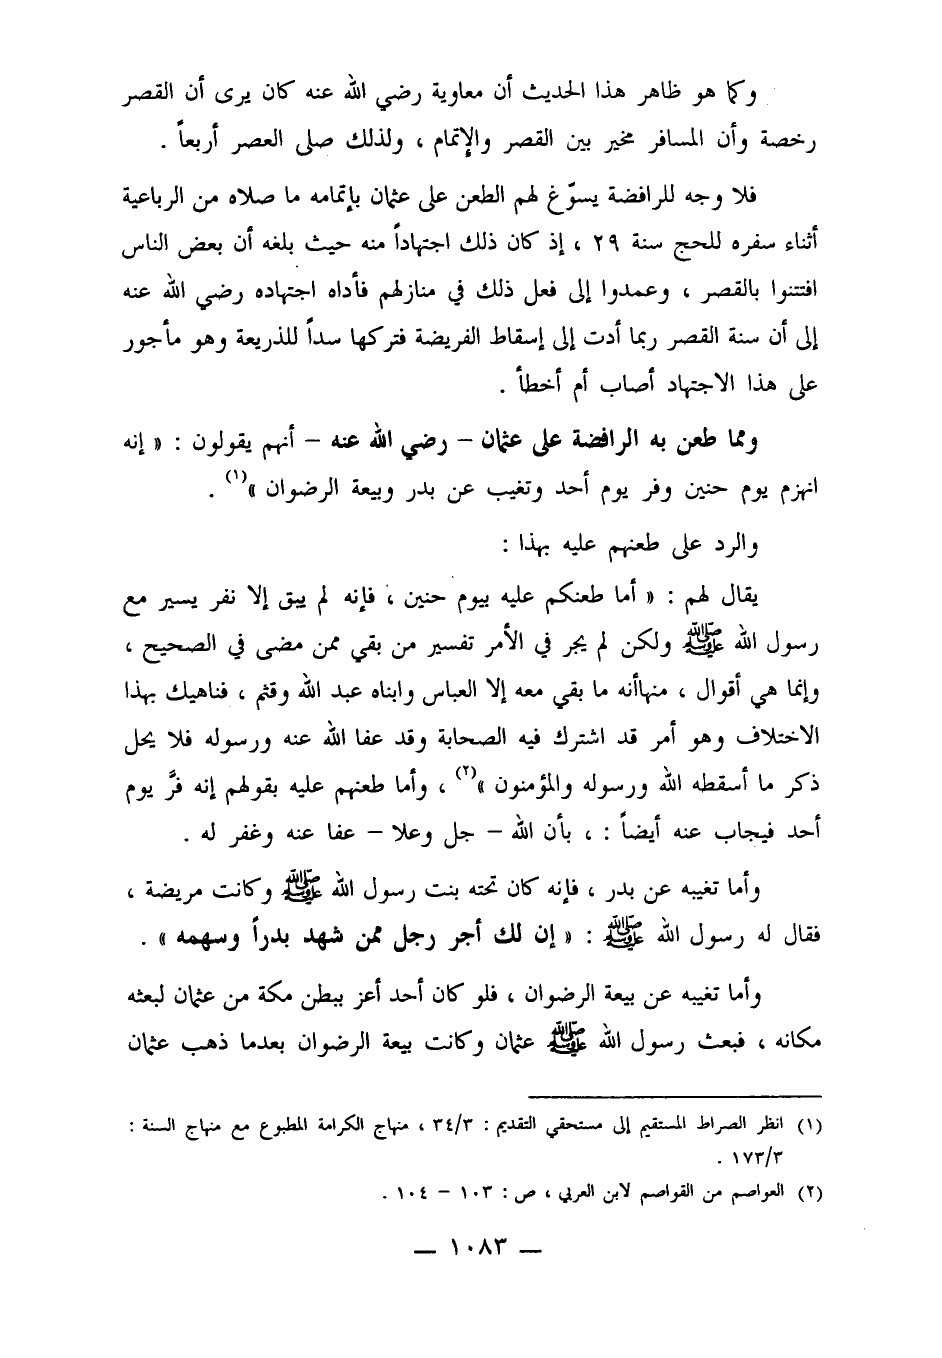 وكما هو ظاهر هذا الحديث أن معاوية رضي الله عنه كان يرى أن القصر
رخصة وأن المسافر مخير بين القصر والإتمام ، ولذلك صلى العصر أربعاً .
فلا وجه للرافضة يسوّغ لهم الطعن على عثمان بإتمامه ما صلاه من الرباعية
أثناء سفره للحج سنة ٢٩ ، إذ كان ذلك اجتهاداً منه حيث بلغه أن بعض الناس
افتتنوا بالقصر ، وعمدوا إلى فعل ذلك في منازلهم فأداه اجتهاده رضي الله عنه
إلى أن سنة القصر ربما أدت إلى إسقاط الفريضة فتركها سداً للذريعة وهو مأجور
على هذا الاجتهاد أصاب أم أخطأ .
ومما طعن به الرافضة على عثمان – رضي الله عنه – أنهم يقولون : « إنه
انهزم يوم حنين وفر يوم أحد وتغيب عن بدر وبيعة الرضوان »(١) .
والرد على طعنهم عليه بهذا :
يقال لهم : « أما طعنكم عليه بيوم حنين ، فإنه لم يبق إلا نفر يسير مع
رسول الله ﷺ ولكن لم يجر في الأمر تفسير من بقي ممن مضى في الصحيح ،
وإنما هي أقوال ، منهاأنه ما بقي معه إلا العباس وابناه عبد الله وقثم ، فناهيك بهذا
الاختلاف وهو أمر قد اشترك فيه الصحابة وقد عفا الله عنه ورسوله فلا يحل
ذكر ما أسقطه الله ورسوله والمؤمنون »(٢) ، وأما طعنهم عليه بقولهم إنه فرَّ يوم
أحد فيجاب عنه أيضاً : ، بأن الله – جل وعلا – عفا عنه وغفر له .
وأما تغيبه عن بدر ، فإنه كان تحته بنت رسول الله ﷺ وكانت مريضة ،
فقال له رسول الله ﷺ : « إن لك أجر رجل ممن شهد بدراً وسهمه » .
وأما تغيبه عن بيعة الرضوان ، فلو كان أحد أعز ببطن مكة من عثمان لبعثه
مكانه ، فبعث رسول الله ﷺ عثمان وكانت بيعة الرضوان بعدما ذهب عثمان
(١) انظر الصراط المستقيم إلى مستحقي التقديم : ٣٤/٣ ، منهاج الكرامة المطبوع مع منهاج السنة :
١٧٣/٣ .
(٢) العواصم من القواصم لابن العربي ، ص : ١٠٣ – ١٠٤ .
— ١٠٨٣ —